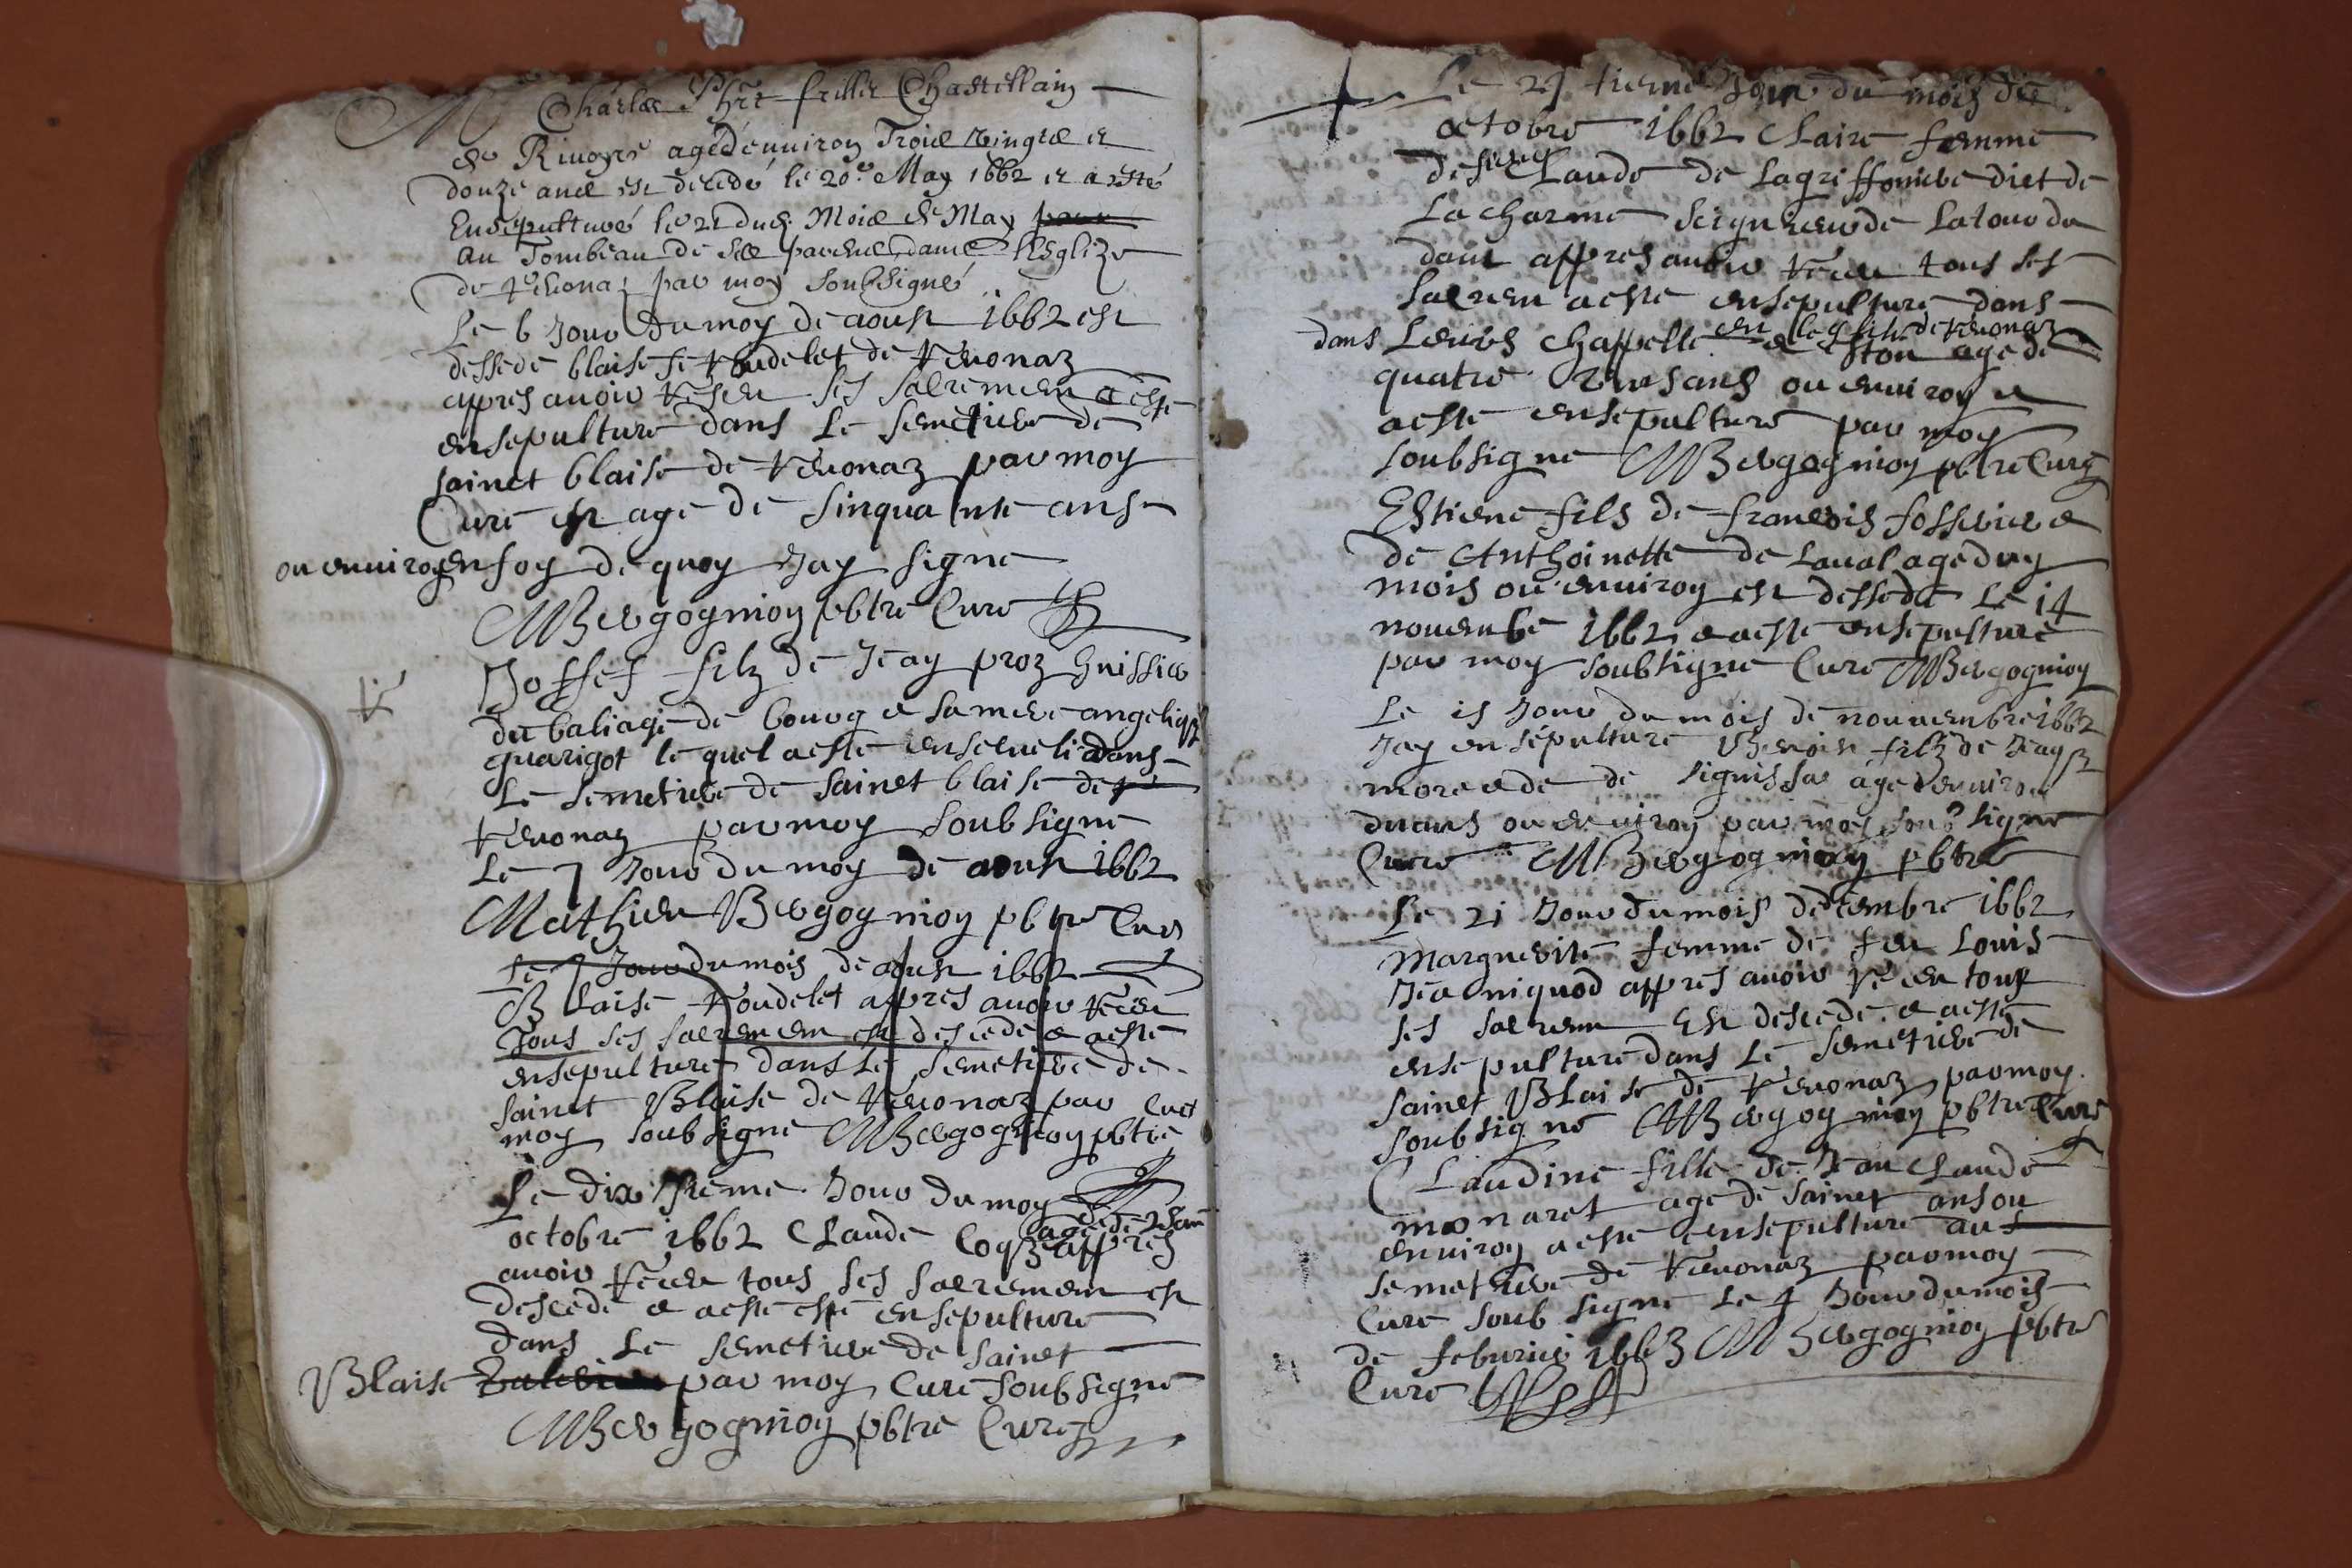 M Charles Phre frillier Chastellain
de Riuoyre agé d'enuiron Trois vingts et
douze ans est decedé le 20e May 1662 et a esté
Ensepulturé le 21 dud. Mois de May
au Tombeau de ses parens dans l'Esglize
de Veuonaz par moy soubsigné
Le 6 Jour du moy de aoust 1662 est
dessede blaise Voudelet de Veuonaz
appres auoir reseu ses sacremen a este
ensepulture dans Le semetiere de
sainct blaise de Veuonaz par moy
Cure est age de sinquante ans
ou enuiron en foy de quoy Jay signe
MBergognion pbtre Cure
Joffef filz de Jean proz huissier
du baliage de bourg e sa mere angeliq
guarigot le quel a este enseueli dans
Le semetiere de sainct blaise de
Veuonaz par moy soub signe
Le 7 Jour du moy de aoust 1662
Mathieu Bergognion pbtre Cure
Le 7 Jour du mois de aoust 1662
Blaise Voudelet appres auoir receu
Tous ses sacremen est descede e aeste
ensepulture dans Le semetiere de
sainct Blaise de Veuonaz par cure
moy soub signe MBergognion pbtre
Le dix Jieme Jour du moy de
octobre 1662 Claude Coq appres
auoir receu tous ses sacremen est
descede e aeste este ensepulture
dans Le semetiere de sainct
Blaise par moy Cure soubsigne
MBergognion pbtre Cure
Le 21 tieme Jour du mois de
octobre 1662 Claire femme
de sieur Claude de Lagriffoniere dict de
La charme seigneur de Latour du
dant appres auoir receu tous ses
sacrem aeste ensepulture dans
dans Leurs chappelle en leglise de Veuonaz
e estoit age de
quatre vins ans ou enuiron e
aeste ensepulture par moy
soubsigne MBergognion pbtre Cure
Estiene fils de francois fosserier e
de Anthoinette de Laual age dun
mois ou enuiron est dessede Le 14
nouembe 1662 e aeste ensepulture
par moy soubsigne Cure MBergognion
Le 15 Jour du mois de nouuembre 1662
Jay ensepulture Benoist filz de Jean
morende de signissa age denuiron
du ans ou enuiron par moy soub signe
Cure MBergognion pbtre
Le 21 Jour du mois decembre 1662
Marguerite femme de feu Louis
Jea niquod appres auoir receu tous
ses sacrem Est descede e aeste
ensepulture dans Le semetiere de
sainct Blaise de Veuonaz par moy
soubsigne MBergognion pbtre Cure
Claudine fille de Jean Claude
monaret age de sainct ans ou
enuiron aeste ensepulture au
semetiere de Veuonaz par moy
Cure soub signe Le 4 Jour du mois
de feburier 1663 MBergognion pbtre
Cure